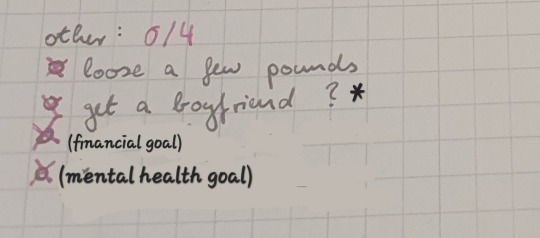 other: 0/4
loose a few pounds
get a boyfriend ? *
(financial goal)
(mental health goal)